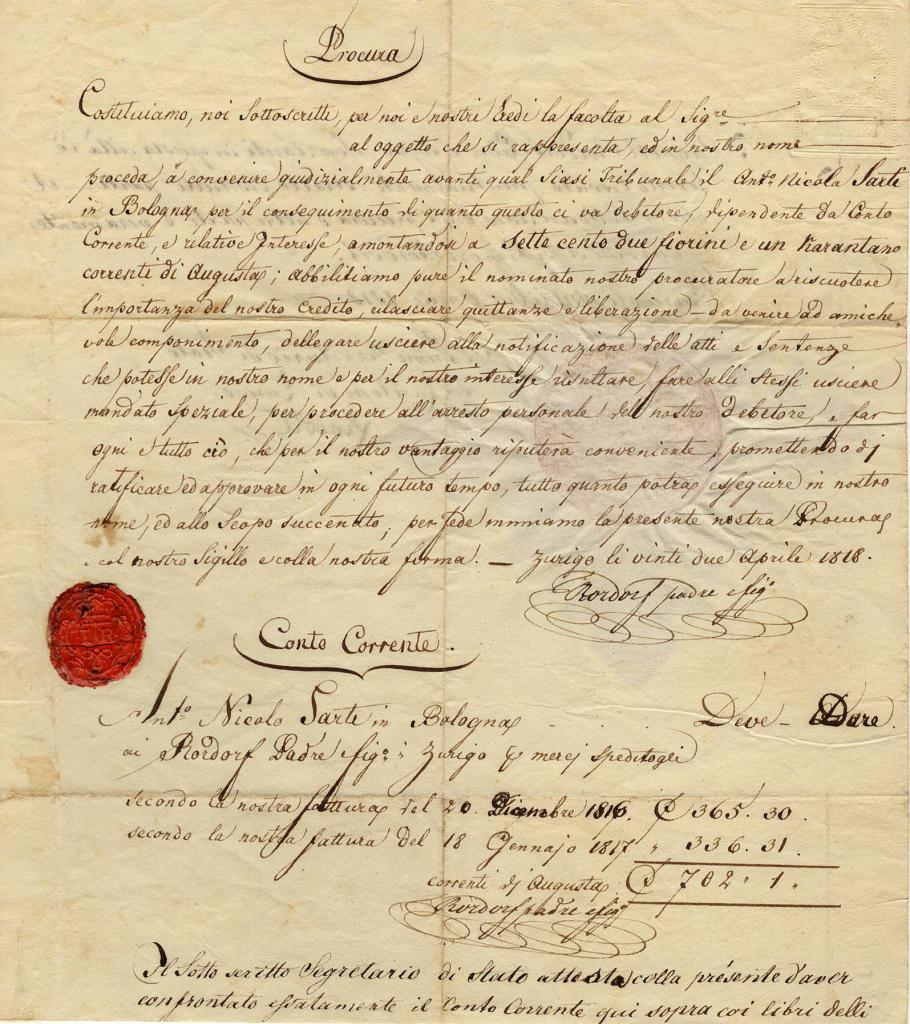 Procura
Costituiamo, noi sottoscritti, per noi e nostri Eedi la facolta al Sigre
al oggetto che si rappresenta, ed in nostro nome
proceda, a convenire giudizialmente avanti qual siasi Tribunale il Anto Nicola Sarti
in Bologna, per il conseguimento di quanto questo ci va debitore, dipendente da Conto
Corrente, e relative Interesse, amontandosi a sette cento due fiorini e un Karantano
correnti di Augusta; abbilitiamo pure il nominato nostro procuratore a riscuotere
l'importanza del nostro Credito, rilasciare quittanze e liberazione – da venire ad amiche=
vole componimento, dellegare usciere alla notificazione delle atti e Sentenze
che potesse in nostro nome e per il nostro interesse risultare, fare alli stessi usciere
mandato speziale, per procedere all'arresto personale del nostro Debitore, e far
ogni e tutto ciò, che per il nostro vantaggio riputerà conveniente, promettendo dj
ratificare ed approvare in ogni futuro tempo, tutto quanto potra esseguire in nostro
nome, ed allo Scopo succenato; per fede muniamo la presente nostra Procura
col nostro Sigillo e colla nostra firma. – Zurigo li vinti due Aprile 1818.
Rordorf padre e figi
Conto Corrente.
Anto Nicolo Sarti in Bologna Deve – Dare.
ai Rordorf Padre e figi: Zurigo p merej speditogli
secondo la nostra fattura del 20. Dicembre 1816. f 365. 30.
secondo la nostra fattura Del 18 Gennajo 1817 " 336. 31.
correnti dj Augusta f 702 " 1 "
Rordorf padre e figi
Il Sotto scritto Segretario di Stato attesta colla présente d'aver
confrontato essatamente il Conto Corrente qui sopra coi libri delli